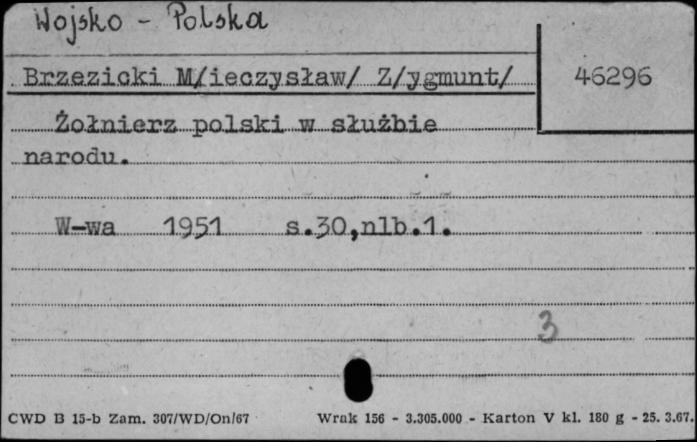 Wojsko - Polska
Brzezicki M/ieczysław/ Z/ygmunt/
46296
Żołnierz polski w służbie
narodu.
W-wa 1951 s.30,nlb.1.
3
CWD B 15-b Zam. 307/WD/On/67 Wrak 156 - 3.305.000 - Karton V kl. 180 g - 25. 3.67.